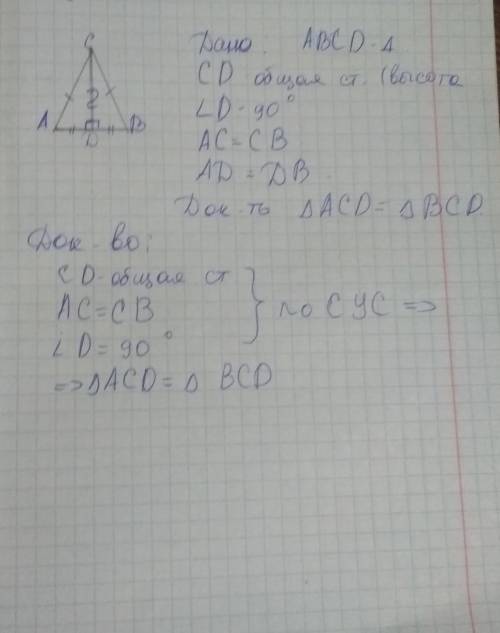 C
A B
D
Дано. ABCD - Δ
CD общая ст. (высота
∠D - 90°
AC = CB
AD = DB.
Док-ть ΔACD = ΔBCD.
Док-во:
CD - общая ст
AC = CB
∠D = 90°
} по СУС =>
=> ΔACD = Δ BCD